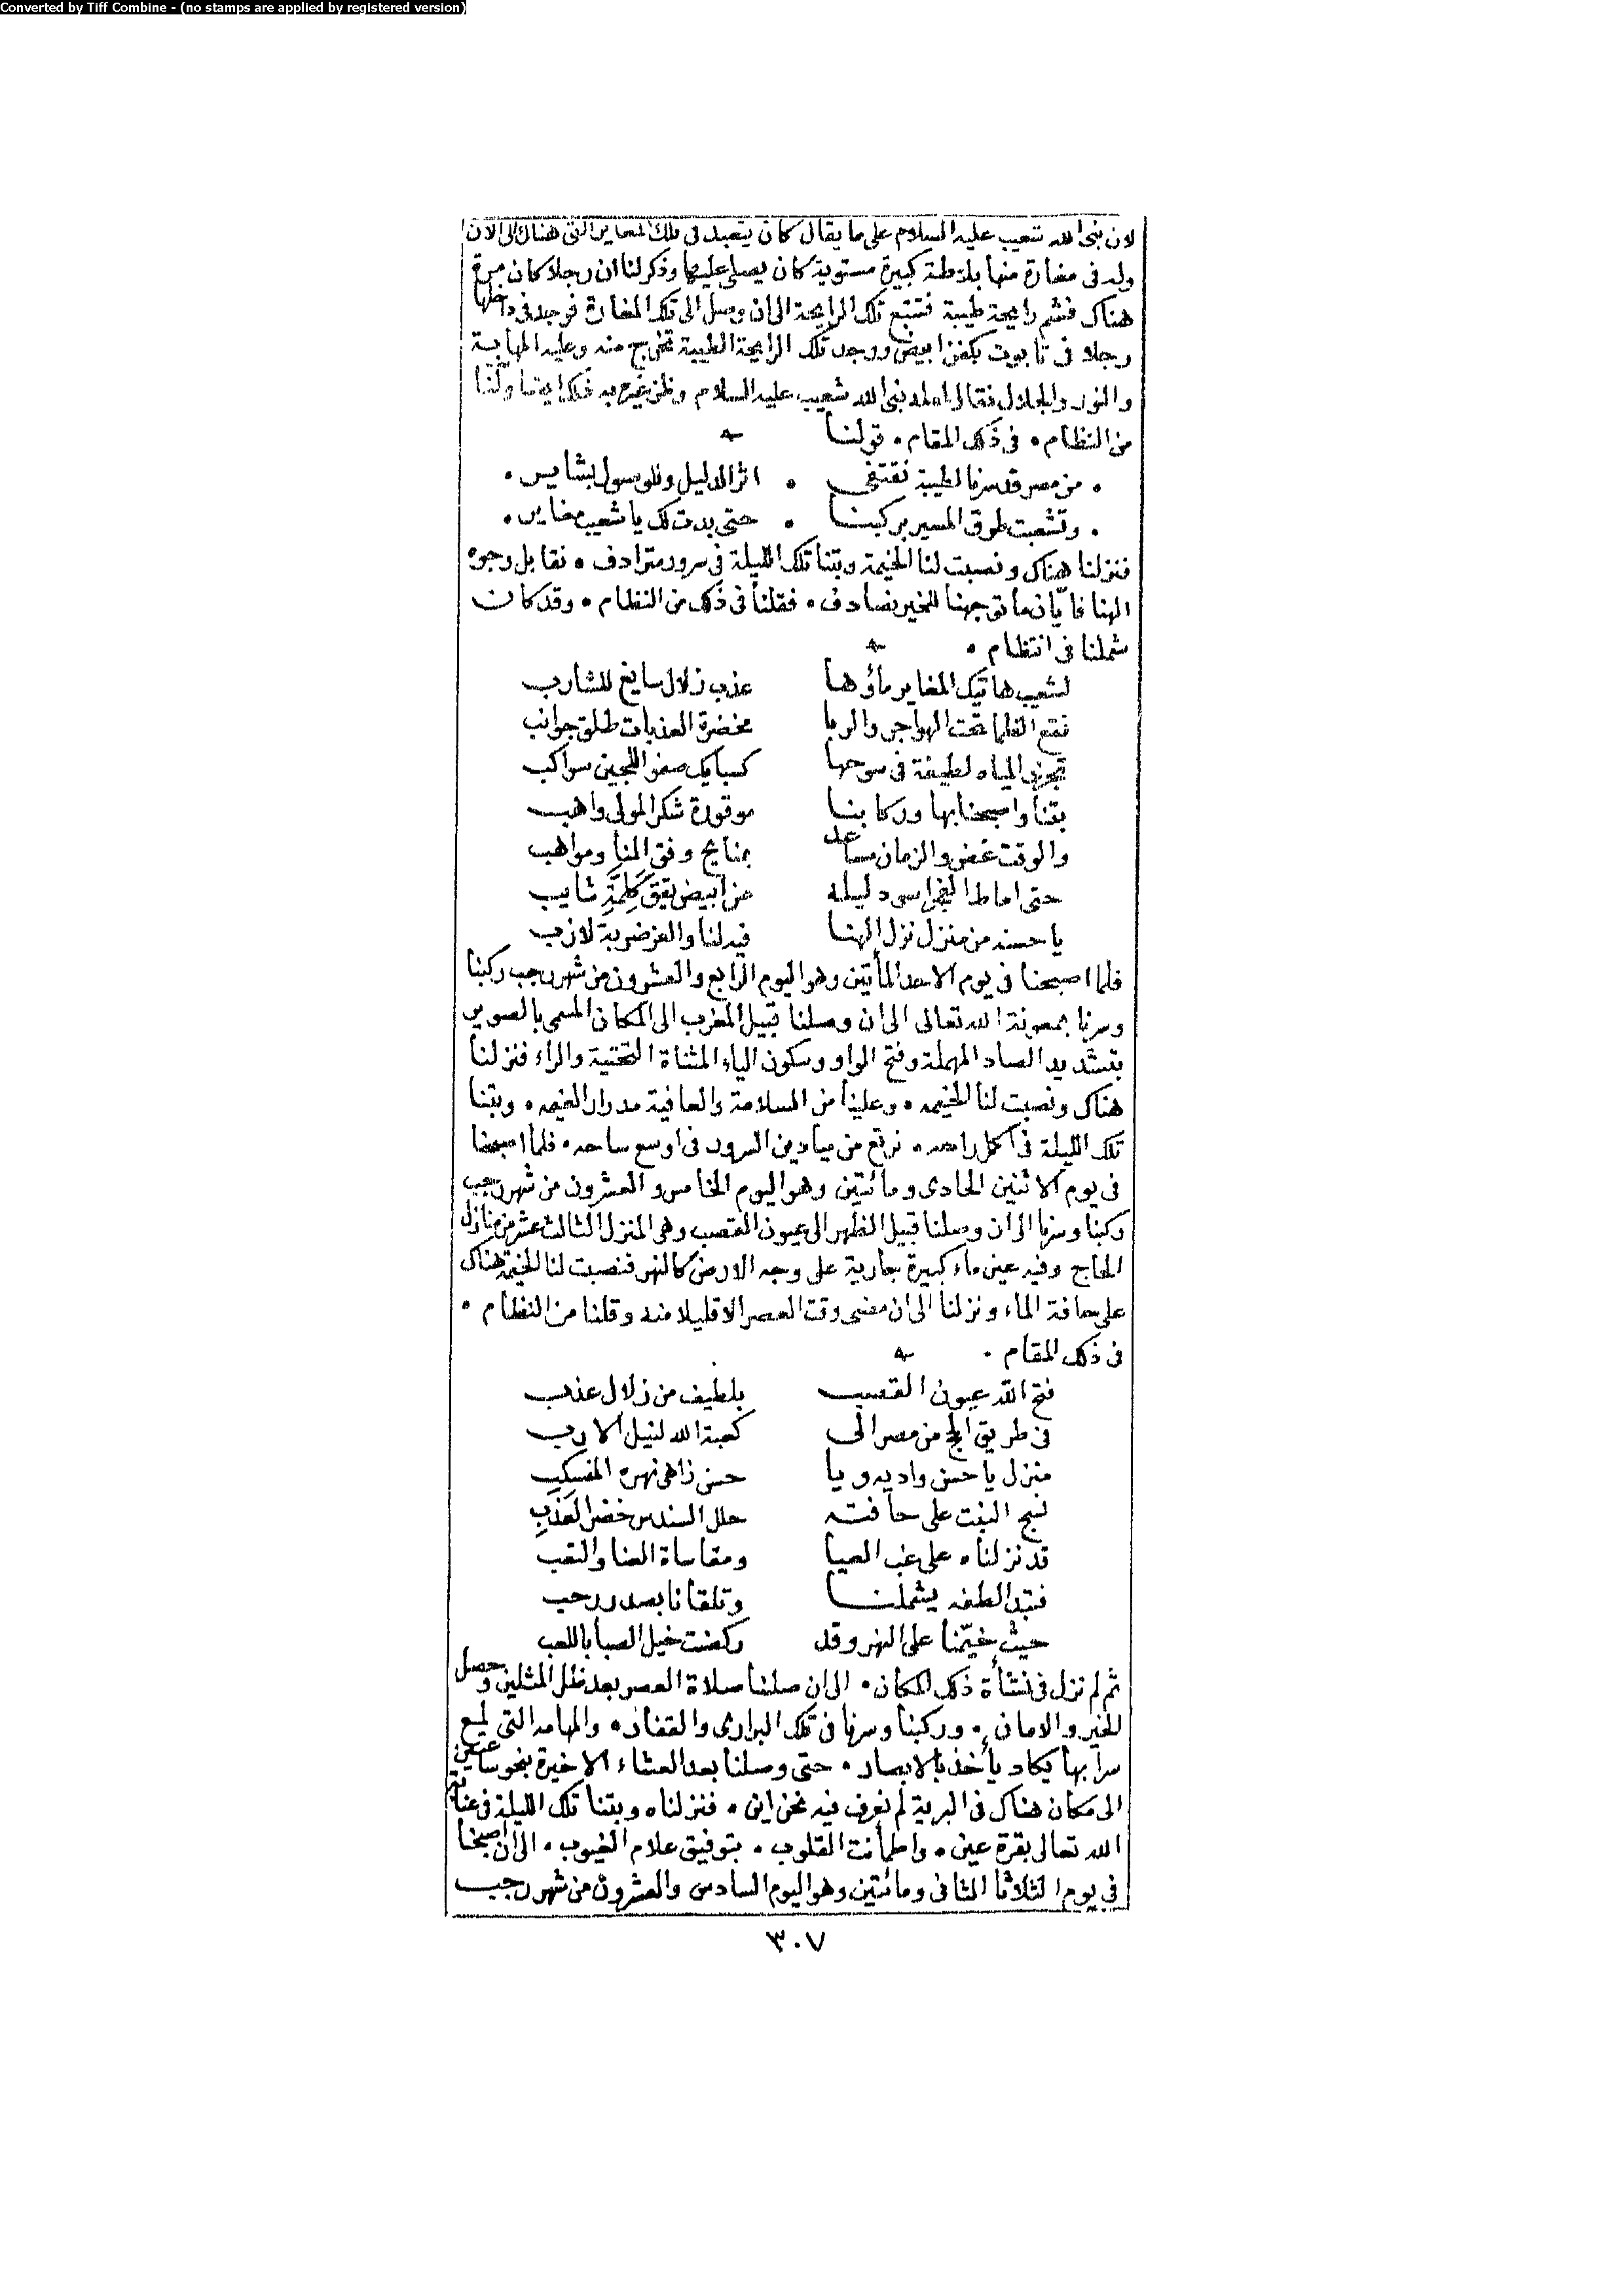 Converted by Tiff Combine - (no stamps are applied by registered version)
لان نبى الله شعيب عليه السلام على ما يقال كان يتعبد فى تلك المغاير التى هناك الى الآن
وله فى مغارة منها بلاطة كبيرة مستوية كان يصلى عليها وذكر لنا ان رجلا كان مرة
هناك فشم رايحة طيبة فتتبع تلك الرايحة الى ان وصل الى تلك المغارة فوجد فى داخلها
رجلا فى تابوت بكفن ابيض ووجد تلك الرايحة الطيبة تخرج منه وعليه المهابة
والنور والجلال فقال لعله نبى الله شعيب عليه السلام
من النظام • فى ذلك المقام • قولنا
• من مصر قد سرنا لطيبة نقتفى • اثر الدليل وللوصول بشاير •
• وتشعبت طرق المسير بركبنا • حتى بدت لك يا شعيب مغاير •
فنزلنا هناك ونصبت لنا الخيمة وبتنا تلك الليلة فى سرور مترادف • نقابل وجوه
الهنا فايّان ما توجهنا للخير نصادف • فقلنا فى ذلك من النظام • وقد كان
شملنا فى انتظام •
لشعيب هاتيك المغاير ماؤها عذب زلال سايغ للشارب
نقع الظما تحت الهواجر والربا مخضرة العذبات طلق جوانب
تجرى المياه لطيفة فى سوحها كسبايك صفو اللجين سواكب
بتنا واصبحنا بها وركابنا موقورة شكر المولى واهب
والوقت غض والزمان مساعد بمنايح وفق المنا ومواهب
حتى اماط الفجر اسود ليله عن ابيض يقق كلمة شايب
يا حسنه من منزل نزل الهنا فيه لنا والعز ضربة لازب
فلما اصبحنا فى يوم الاحد المأتين وهو اليوم الرابع والعشرون من شهر رجب ركبنا
وسرنا بمعونة الله تعالى الى ان وصلنا قبيل المغرب الى المكان المسمى بالصوير
بتشديد الصاد المهملة وفتح الواو وسكون الياء المثناة التحتية والراء فنزلنا
هناك ونصبت لنا الخيمه • وعلينا من السلامة والعافية مدرار الغيمه • وبتنا
تلك الليلة فى اكمل راحه • نرتع من ميادين السرور فى اوسع ساحه • فلما اصبحنا
فى يوم الاثنين الحادى ومائتين وهو اليوم الخامس والعشرون من شهر رجب
ركبنا وسرنا الى ان وصلنا قبيل الظهر الى عيون القصب وهى المنزل الثالث عشر من منازل
الحاج وفيه عين ماء كبيرة جارية على وجه الارض كالنهر فنصبت لنا الخيمة هناك
على حافة الماء ونزلنا الى ان مضى وقت العصر الا قليلا منه وقلنا من النظام •
فى ذلك المقام •
فتح الله عيون القصب بلطيف من زلال عذب
فى طريق الحج من مصر الى كعبة الله لنيل الارب
منزل يا حسن واديه ويا حسن زاهى نهره المنسكب
نسج النبت على حافته حلل السندس خضر العذب
قد نزلناه على غب العيا ومقاساة العنا والتعب
فتبدّا لطفه يشملنا وتلقانا بصدر رحب
حيث خيّمنا على النهر وقد ركضت خيل الصبا باللعب
ثم لم نزل فى نشأة ذلك المكان • الى ان صلينا صلاة العصر بعد ظل المثلين وحصل
الخير والامان • وركبنا وسرنا فى تلك البرارى والقفار • والمهامه التى لميع
سرابها يكاد يأخذ بالابصار • حتى وصلنا بعد العشاء الاخيرة بنحو ساعتين
الى مكان هناك فى البرية لم نعرف فيه نحن اين • فنزلناه وبتنا تلك الليلة فى عناية
الله تعالى بقرة عين • واطمأنت القلوب • بتوفيق علام الغيوب • الى ان اصبحنا
فى يوم الثلاثا الثانى ومائتين وهو اليوم السادس والعشرون من شهر رجب
٣٠٧